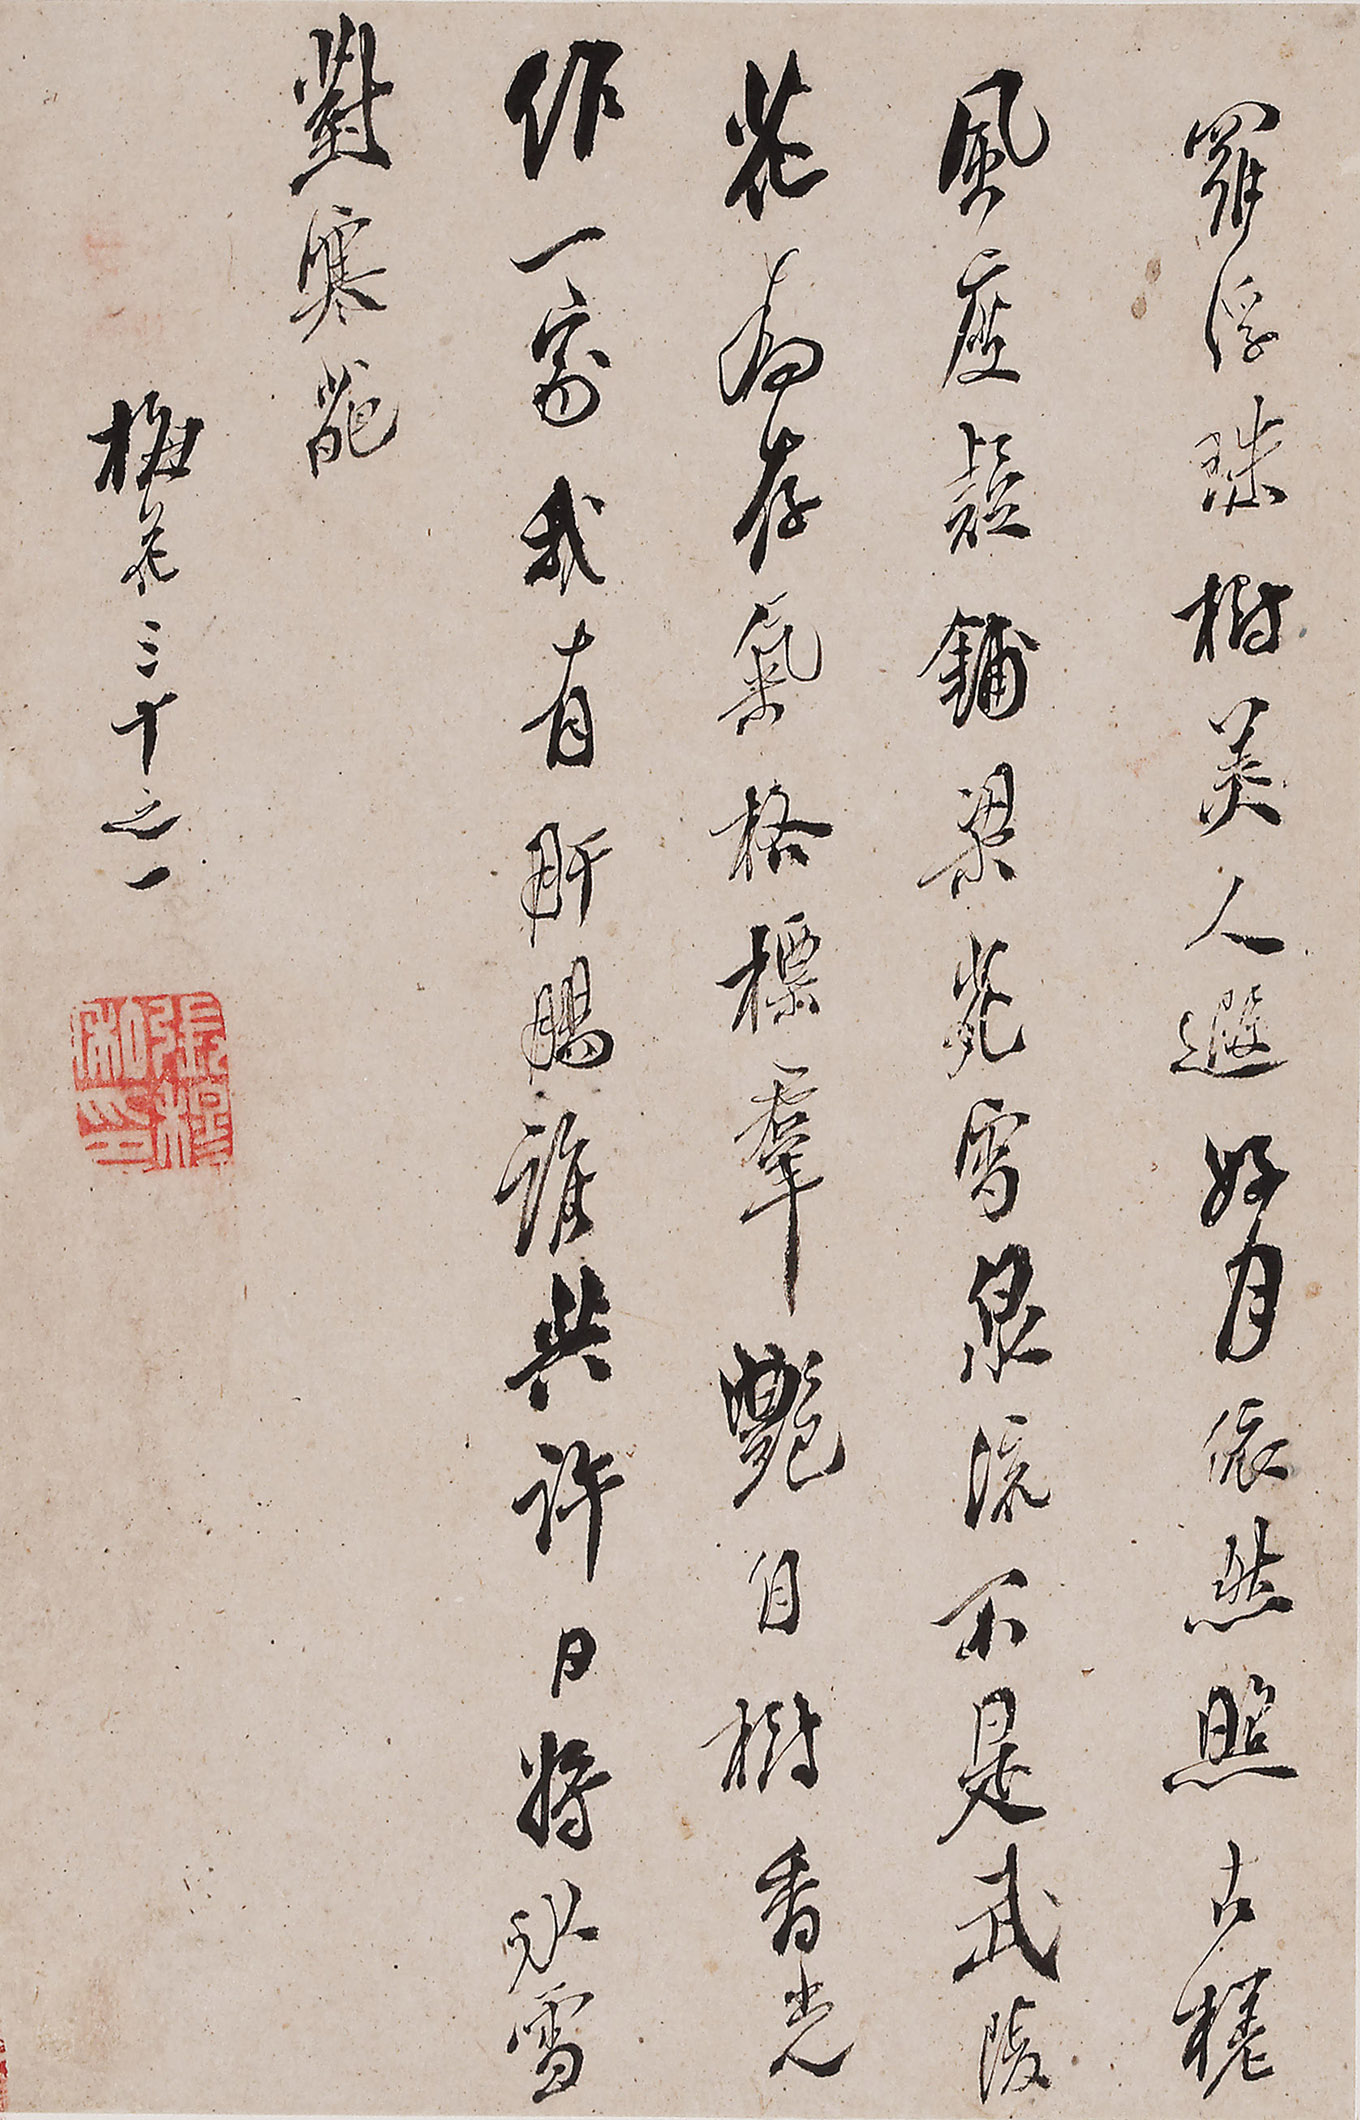 羅浮珠樹美人遐好月依然照古槎
風度疑鋪梁苑雪泉流不是武陵
花為存氣格標羣艷自樹香光
作一家我有肝腸誰共許日將冰雪
對寒葩
梅花三十之一
張穆私印